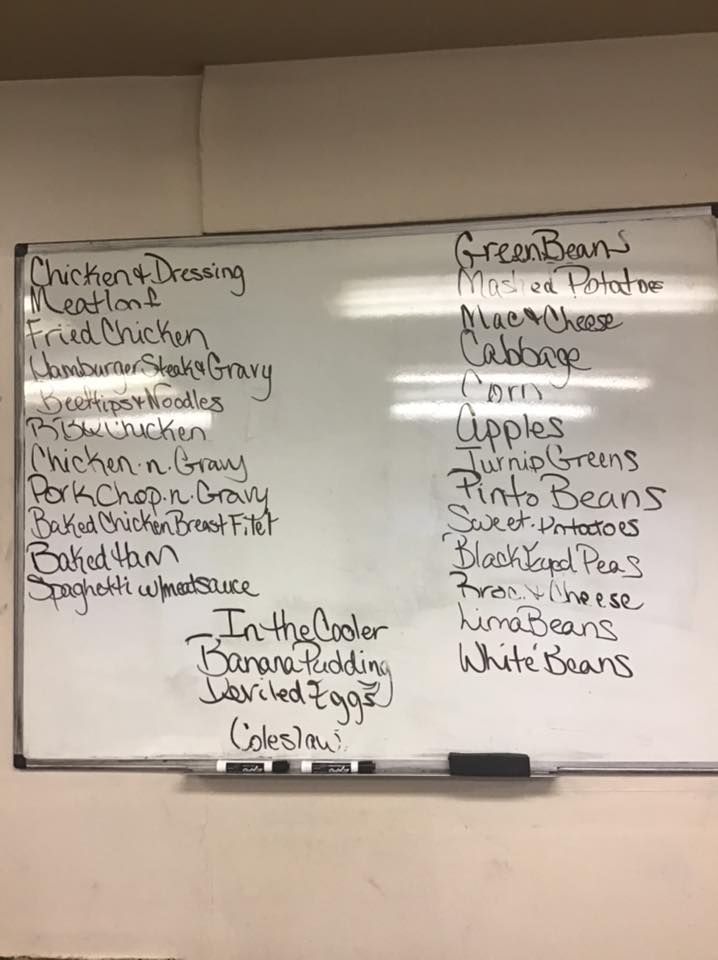 Chicken & Dressing
Meatloaf
Fried Chicken
Hamburger Steak & Gravy
Beeftips & Noodles
BBQ Chicken
Chicken.n.Gravy
Pork Chop.n.Gravy
Baked Chicken Breast Filet
Baked Ham
Spaghetti w/meatsauce
Green Beans
Mashed Potatoes
Mac & Cheese
Cabbage
Corn
Apples
Turnip Greens
Pinto Beans
Sweet.Potatoes
Black Eyed Peas
Broc. & Cheese
Lima Beans
White Beans
In the Cooler
Banana Pudding
Deviled Eggs
Coleslaw